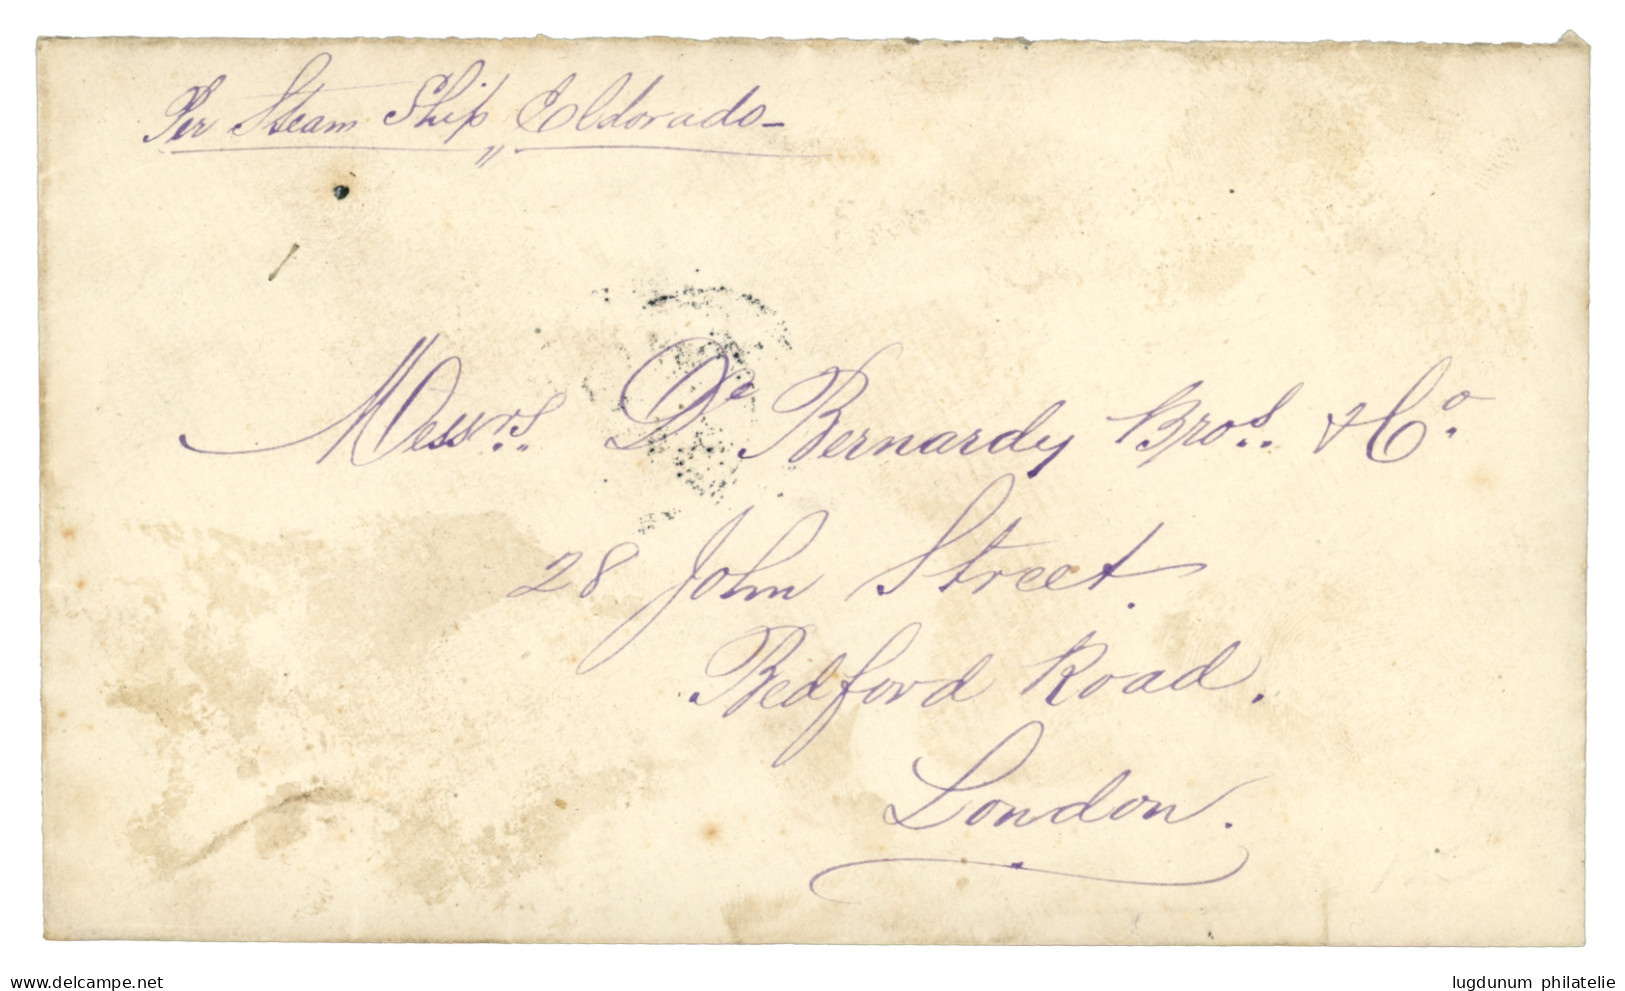 Per Steam Ship „Eldorado-
Messrs. De Bernardy Bros. & Co.
28 John Street.
Bedford Road.
London.
www.delcampe.net
lugdunum philatelie